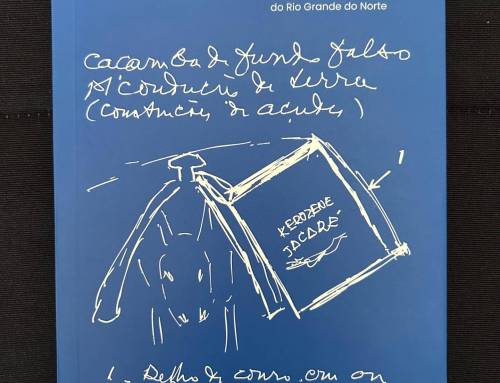 do Rio Grande do Norte
Caçamba de fundo falso
p/ conducção de terra
(Construcções de açudes)
1
KEROZENE
JACARÉ
1 - Relho de couro, com ou